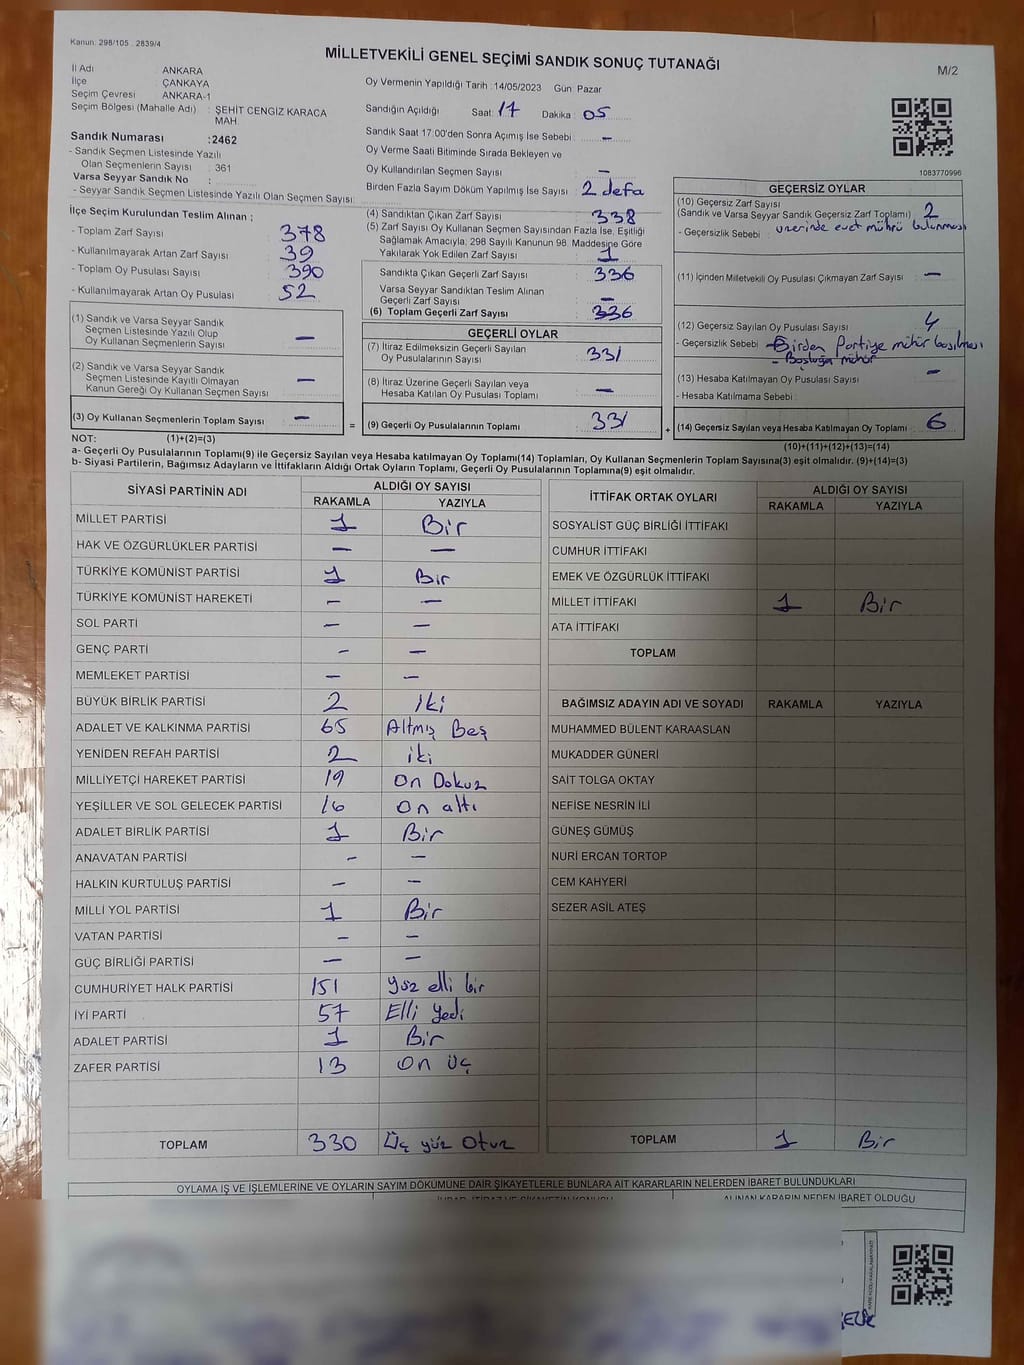 Kanun: 298/105 . 2839/4
MİLLETVEKİLİ GENEL SEÇİMİ SANDIK SONUÇ TUTANAĞI
M/2
İl Adı : ANKARA
İlçe : ÇANKAYA
Seçim Çevresi : ANKARA-1
Seçim Bölgesi (Mahalle Adı) : ŞEHİT CENGİZ KARACA MAH.
Sandık Numarası :2462
- Sandık Seçmen Listesinde Yazılı
Olan Seçmenlerin Sayısı : 361
Varsa Seyyar Sandık No :
- Seyyar Sandık Seçmen Listesinde Yazılı Olan Seçmen Sayısı:
Oy Vermenin Yapıldığı Tarih :14/05/2023 Gün: Pazar
Sandığın Açıldığı Saat: 17 Dakika: 05
Sandık Saat 17:00'den Sonra Açımış İse Sebebi : –
Oy Verme Saati Bitiminde Sırada Bekleyen ve
Oy Kullandırılan Seçmen Sayısı : –
Birden Fazla Sayım Döküm Yapılmış İse Sayısı : 2 defa
1083770996
İlçe Seçim Kurulundan Teslim Alınan ;
- Toplam Zarf Sayısı : 378
- Kullanılmayarak Artan Zarf Sayısı : 39
- Toplam Oy Pusulası Sayısı : 390
- Kullanılmayarak Artan Oy Pusulası : 52
(1) Sandık ve Varsa Seyyar Sandık
Seçmen Listesinde Yazılı Olup
Oy Kullanan Seçmenlerin Sayısı : –
(2) Sandık ve Varsa Seyyar Sandık
Seçmen Listesinde Kayıtlı Olmayan
Kanun Gereği Oy Kullanan Seçmen Sayısı : –
(3) Oy Kullanan Seçmenlerin Toplam Sayısı : –
(4) Sandıktan Çıkan Zarf Sayısı : 338
(5) Zarf Sayısı Oy Kullanan Seçmen Sayısından Fazla İse, Eşitliği
Sağlamak Amacıyla, 298 Sayılı Kanunun 98. Maddesine Göre
Yakılarak Yok Edilen Zarf Sayısı : 1
Sandıkla Çıkan Geçerli Zarf Sayısı : 336
Varsa Seyyar Sandıktan Teslim Alınan
Geçerli Zarf Sayısı : –
(6) Toplam Geçerli Zarf Sayısı : 336
GEÇERLİ OYLAR
(7) İtiraz Edilmeksizin Geçerli Sayılan
Oy Pusulalarının Sayısı : 331
(8) İtiraz Üzerine Geçerli Sayılan veya
Hesaba Katılan Oy Pusulası Toplamı : –
= (9) Geçerli Oy Pusulalarının Toplamı : 331
GEÇERSİZ OYLAR
(10) Geçersiz Zarf Sayısı
(Sandık ve Varsa Seyyar Sandık Geçersiz Zarf Toplamı) : 2
- Geçersizlik Sebebi : üzerinde evet mührü bulunması
(11) İçinden Milletvekili Oy Pusulası Çıkmayan Zarf Sayısı : –
(12) Geçersiz Sayılan Oy Pusulası Sayısı : 4
- Geçersizlik Sebebi : - Birden Partiye mühür basılması
- Boşluğa mühür
(13) Hesaba Katılmayan Oy Pusulası Sayısı : –
- Hesaba Katılmama Sebebi :
+ (14) Geçersiz Sayılan veya Hesaba Katılmayan Oy Toplamı : 6
NOT: (1)+(2)=(3)
(10)+(11)+(12)+(13)=(14)
a- Geçerli Oy Pusulasının Toplamı(9) ile Geçersiz Sayılan veya Hesaba katılmayan Oy Toplamı(14) Toplamları, Oy Kullanan Seçmenlerin Toplam Sayısına(3) eşit olmalıdır. (9)+(14)=(3)
b- Siyasi Partilerin, Bağımsız Adayların ve İttifakların Aldığı Ortak Oyların Toplamı, Geçerli Oy Pusulalarının Toplamına(9) eşit olmalıdır.
SİYASİ PARTİNİN ADI ALDIĞI OY SAYISI
RAKAMLA YAZIYLA
MİLLET PARTİSİ 1 Bir
HAK VE ÖZGÜRLÜKLER PARTİSİ – –
TÜRKİYE KOMÜNİST PARTİSİ 1 Bir
TÜRKİYE KOMÜNİST HAREKETİ – –
SOL PARTİ – –
GENÇ PARTİ – –
MEMLEKET PARTİSİ – –
BÜYÜK BİRLİK PARTİSİ 2 iki
ADALET VE KALKINMA PARTİSİ 65 Altmış Beş
YENİDEN REFAH PARTİSİ 2 iki
MİLLİYETÇİ HAREKET PARTİSİ 19 On Dokuz
YEŞİLLER VE SOL GELECEK PARTİSİ 16 On altı
ADALET BİRLİK PARTİSİ 1 Bir
ANAVATAN PARTİSİ – –
HALKIN KURTULUŞ PARTİSİ – –
MİLLİ YOL PARTİSİ 1 Bir
VATAN PARTİSİ – –
GÜÇ BİRLİĞİ PARTİSİ – –
CUMHURİYET HALK PARTİSİ 151 Yüz elli bir
İYİ PARTİ 57 Elli Yedi
ADALET PARTİSİ 1 Bir
ZAFER PARTİSİ 13 On Üç
TOPLAM 330 Üç yüz Otuz
İTTİFAK ORTAK OYLARI ALDIĞI OY SAYISI
RAKAMLA YAZIYLA
SOSYALİST GÜÇ BİRLİĞİ İTTİFAKI
CUMHUR İTTİFAKI
EMEK VE ÖZGÜRLÜK İTTİFAKI
MİLLET İTTİFAKI 1 Bir
ATA İTTİFAKI
TOPLAM
BAĞIMSIZ ADAYIN ADI VE SOYADI RAKAMLA YAZIYLA
MUHAMMED BÜLENT KARAASLAN
MUKADDER GÜNERİ
SAİT TOLGA OKTAY
NEFİSE NESRİN İLİ
GÜNEŞ GÜMÜŞ
NURİ ERCAN TORTOP
CEM KAHYERİ
SEZER ASİL ATEŞ
TOPLAM 1 Bir
OYLAMA İŞ VE İŞLEMLERİNE VE OYLARIN SAYIM DÖKÜMÜNE DAİR ŞİKAYETLERLE BUNLARA AİT KARARLARIN NELERDEN İBARET BULUNDUKLARI
ALINAN KARARIN NEDEN İBARET OLDUĞU